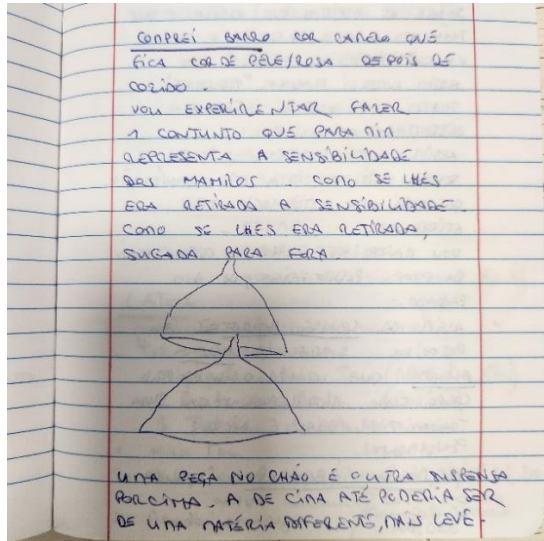 COMPREI BARRO COR CAMELO QUE
FICA COR DE PELE/ROSA DEPOIS DE
COZIDO.
VOU EXPERIMENTAR FAZER
1 CONJUNTO QUE PARA MIM
REPRESENTA A SENSIBILIDADE
DOS MAMILOS. COMO SE LHES
ERA RETIRADA A SENSIBILIDADE.
COMO SE LHES ERA RETIRADA,
SUGADA PARA FORA.
UMA PEÇA NO CHÃO E OUTRA SUSPENSA
POR CIMA. A DE CIMA ATÉ PODERIA SER
DE UMA MATÉRIA DIFERENTE, MAIS LEVE.